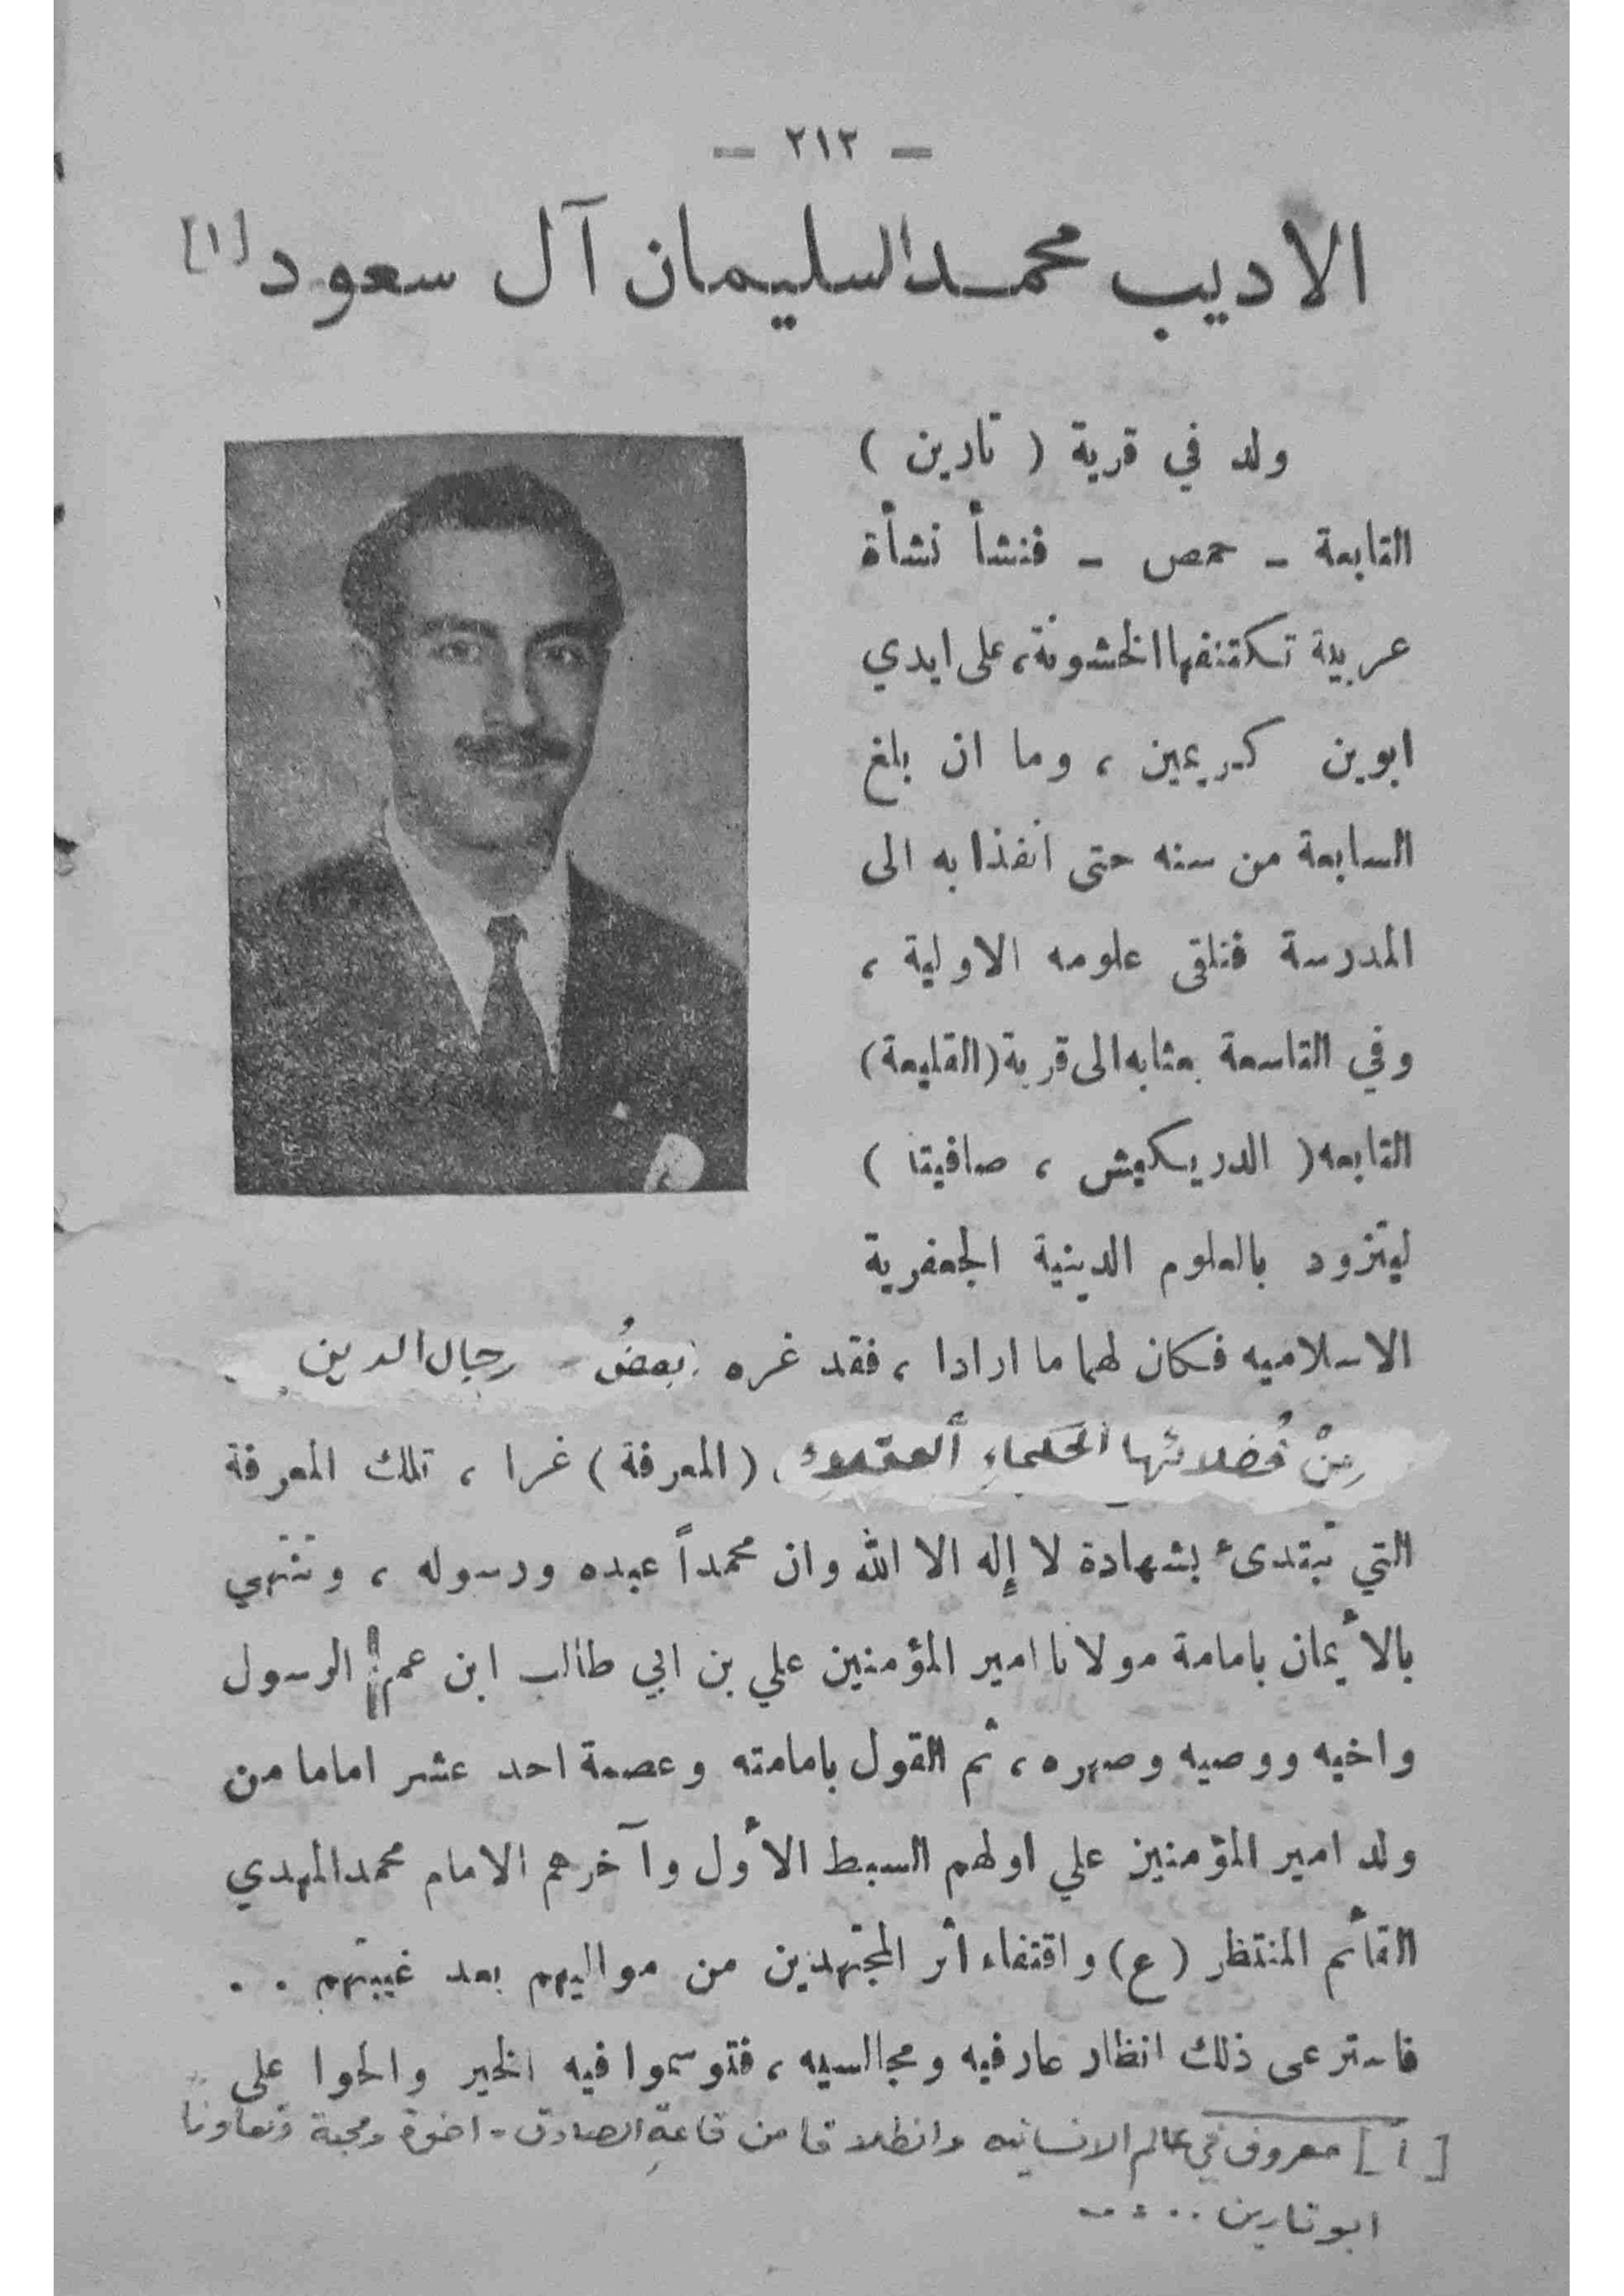 — ٢١٢ —
الاديب محمد السليمان آل سعود [١]
ولد في قرية ( تارين )
التابعة - حمص - فنشأ نشأة
عربية تكتنفها الخشونة، على ايدي
ابوين كريمين ، وما ان بلغ
السابعة من سنه حتى انفذا به الى
المدرسة فتلقى علومه الاولية ،
وفي التاسعة بعثا به الى قرية (القليعة)
التابعه ( الدريكيش ، صافيتا )
ليتزود بالعلوم الدينية الجعفرية
الاسلاميه فكان لهما ما ارادا ، فقد غره بعضُ - رجال الدين
مِنْ فُضلائها الحكماءِ (المعرفة) غرا ، تلك المعرفة
التي تبتدىء بشهادة لا إله الا الله وان محمداً عبده ورسوله ، وتنتهي
بالأيمان بامامة مولانا امير المؤمنين علي بن ابي طالب ابن عم الرسول
واخيه ووصيه وصهره ، ثم القول بامامته وعصمة احد عشر اماما من
ولد امير المؤمنين علي اولهم السبط الأول وآخرهم الامام محمد المهدي
القأئم المنتظر (ع) واقتفاء أثر المجتهدين من مواليهم بعد غيبتهم . .
فاسترعى ذلك انظار عارفيه ومجالسيه ، فتوسموا فيه الخير والحوا على
[١] معروف في عالم الانسانيه وانطلاقا من قاعةِ الصادق - اخوة ومحبة وتعاونا
ابو تارين ..